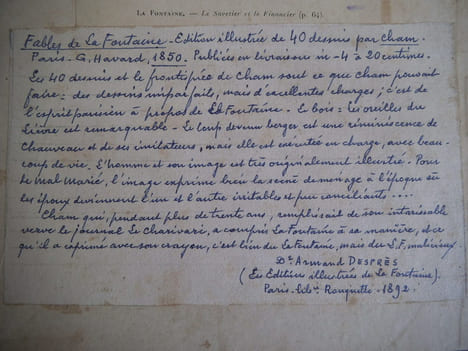 LA FONTAINE. — Le Savetier et le Financier (p. 64).
Fables de La Fontaine. Edition illustrée de 40 dessins par Cham.
Paris. G. Havard, 1850. Publiées en livraisons in-4 à 20 centimes.
Les 40 dessins et le frontispice de Cham sont ce que Cham pouvait
faire: des dessins imparfaits, mais d'excellentes charges; c'est de
l'esprit parisien à propos de La Fontaine. Le bois: les oreilles du
lièvre est remarquable. Le Loup devenu berger, est une réminiscence de
Chauveau et de ses imitateurs, mais elle est exécutée en charge, avec beau-
coup de vie. L'homme et son image est très originalement illustré. Pour
le mal Marié, l'image exprime bien la scène de ménage à l'époque où
les époux deviennent l'un et l'autre irritables et peu conciliants ....
Cham qui, pendant plus de trente ans, remplissait de son intarissable
verve le journal Le Charivari, a compris La Fontaine à sa manière, et ce
qu'il a exprimé avec son crayon, c'est bien du La Fontaine, mais du L.F. malicieux.
Dr. Armand DESPRÈS
(Les Editions illustrées de La Fontaine).
Paris. Libie. Rouquette. 1892.